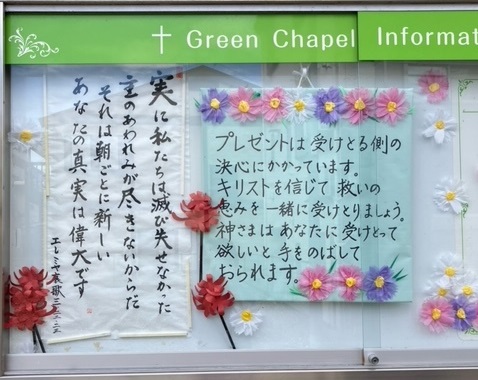 ✝ Green Chapel Informat
実に私たちは滅び失せなかった
主のあわれみが尽きないからだ
それは朝ごとに新しい
あなたの真実は偉大です
エレミヤ哀歌三・二二、二三
プレゼントは受けとる側の
決心にかかっています。
キリストを信じて救いの
恵みを一緒に受けとりましょう。
神さまはあなたに受けとって
欲しいと手をのばして
おられます。